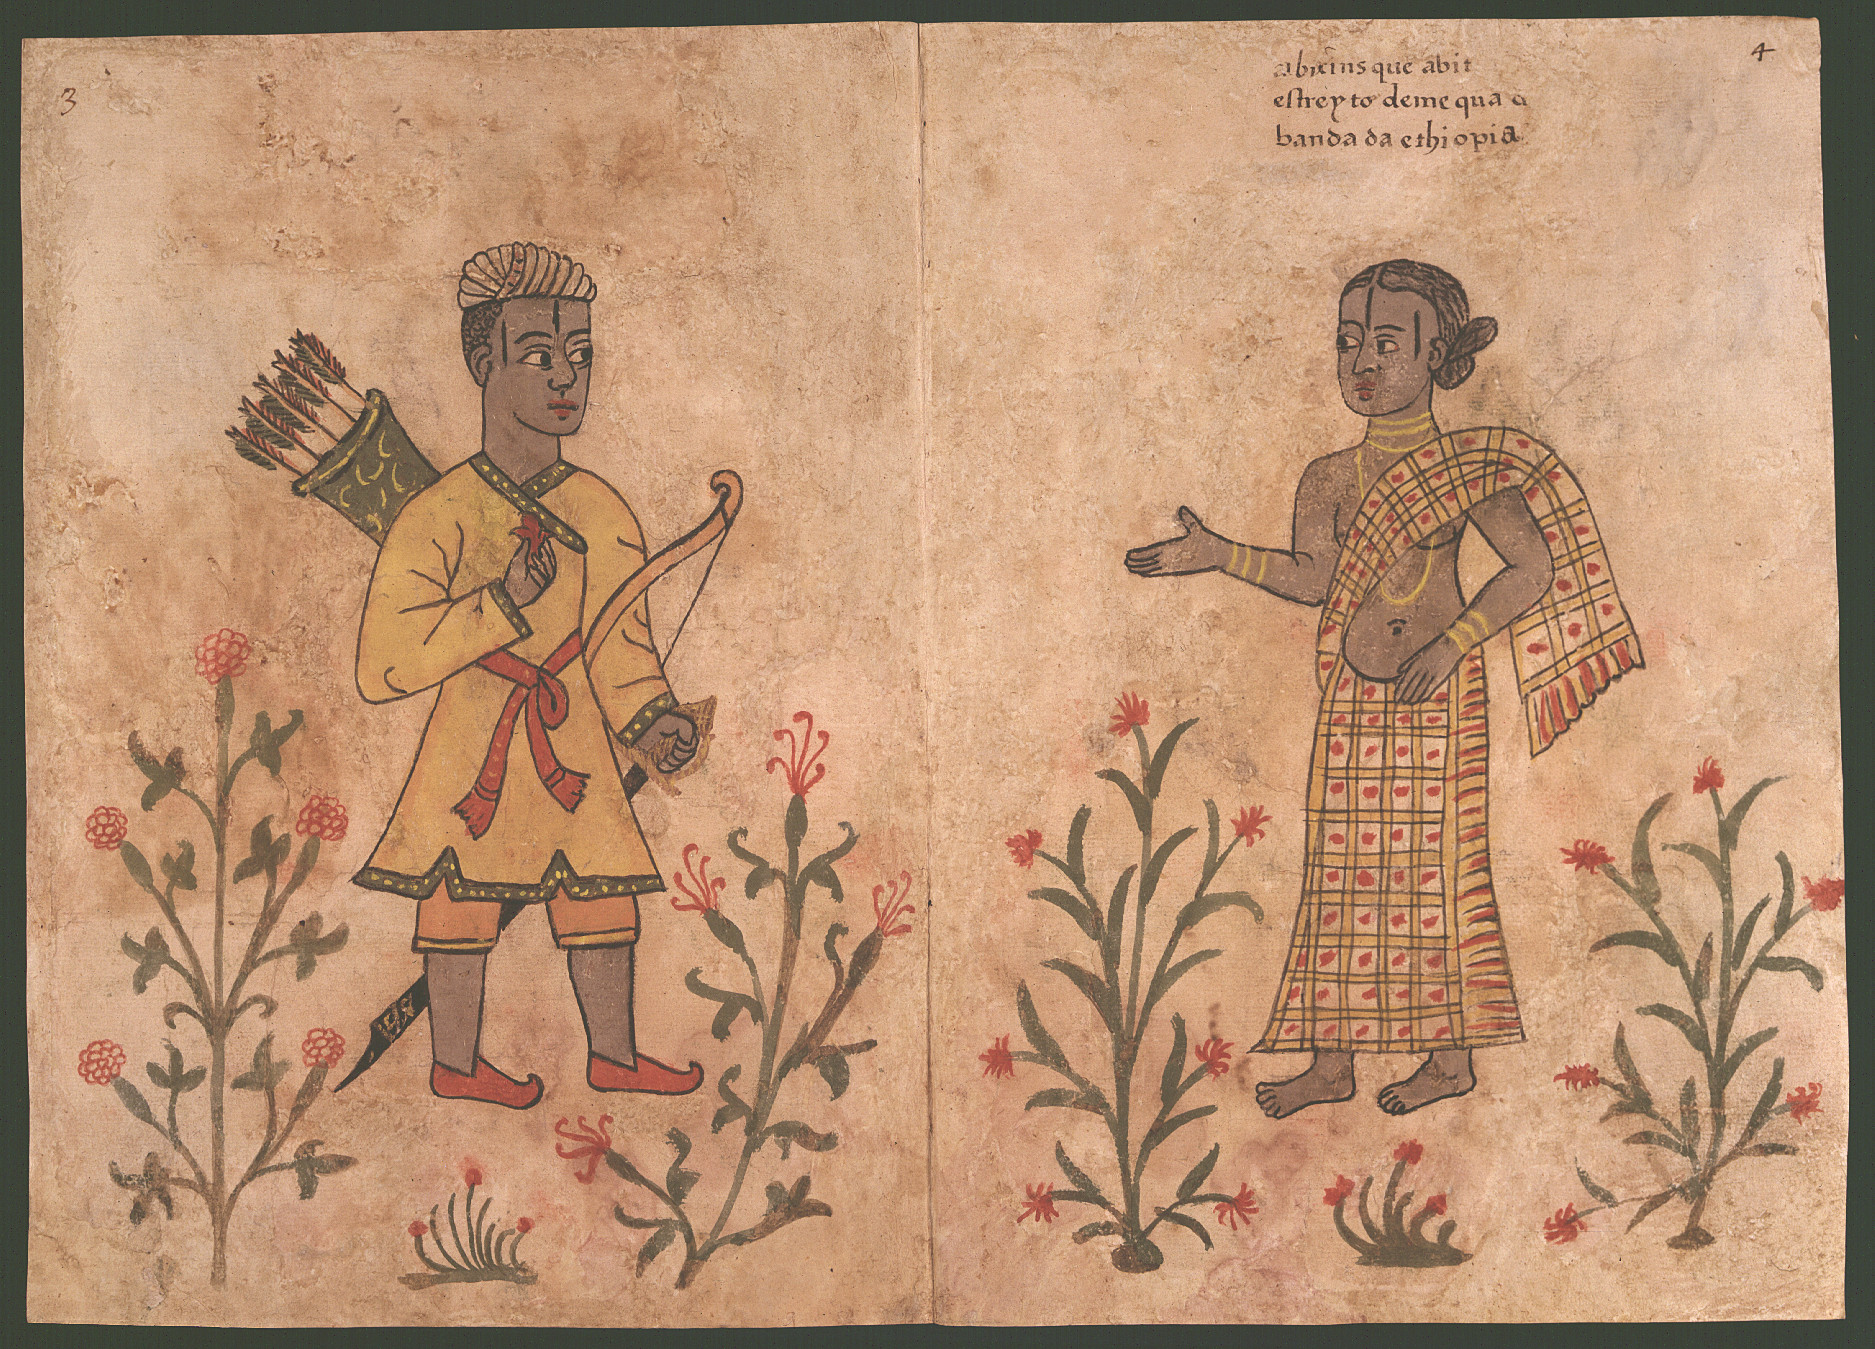 3
4
abixins que abit
estreyto de mequa a
banda da ethiopia